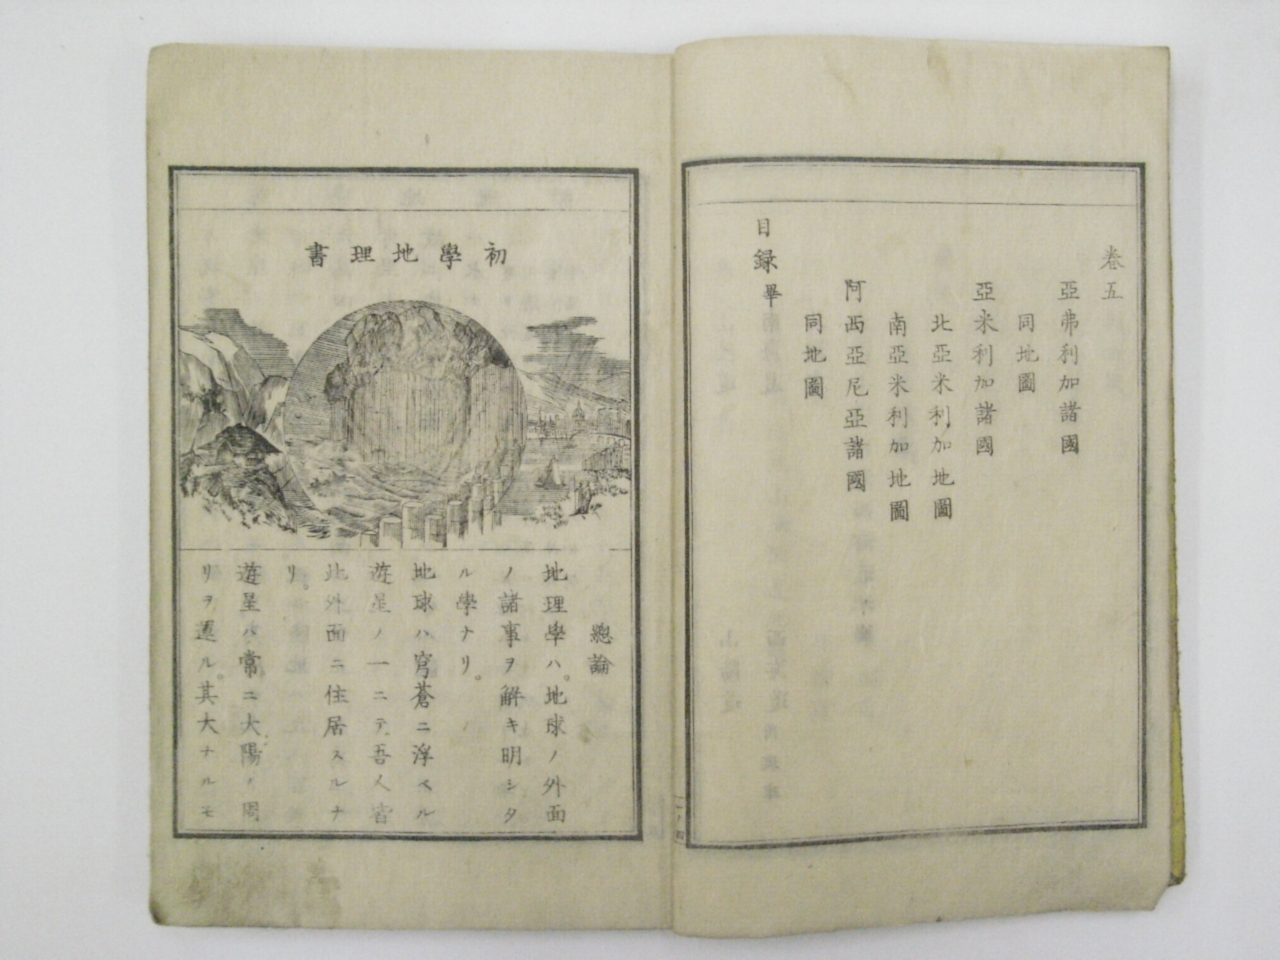 卷五
亞弗利加諸國
同地圖
亞米利加諸國
北亞米利加地圖
南亞米利加地圖
阿西亞尼亞諸國
同地圖
目録畢
初學地理書
總論
地理學ハ。地球ノ外面
ノ諸事ヲ解キ明シタ
ル學ナリ。
地球ハ穹蒼ニ浮ベル
遊星ノ一ニテ吾人皆
此外面ニ住居スルナ
リ。
遊星ハ常ニ大陽ノ周
リヲ還ル。其大ナルモ